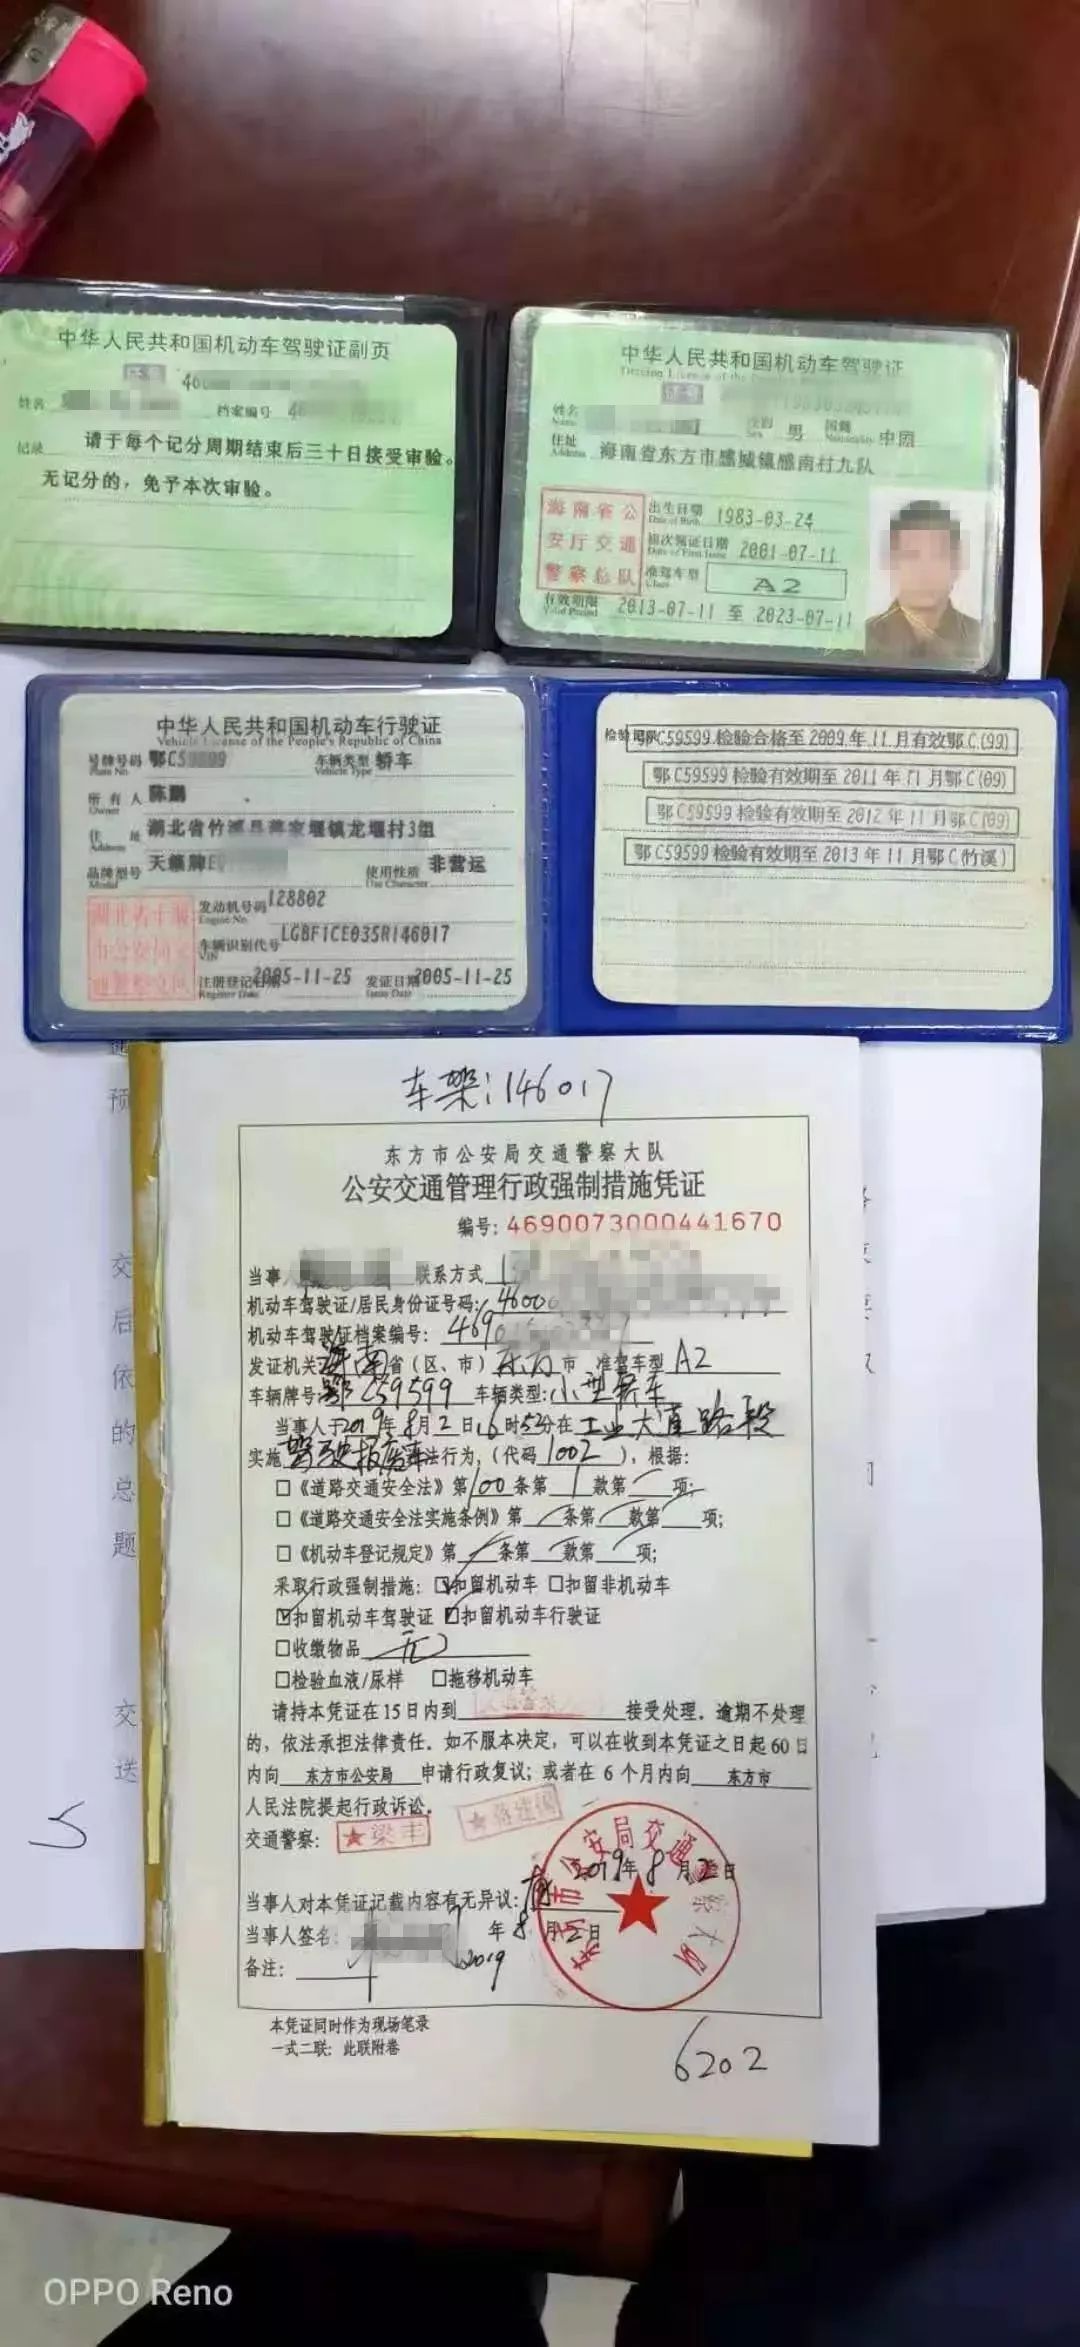 中华人民共和国机动车驾驶证副页
证号 460
姓名 档案编号 46
记录 请于每个记分周期结束后三十日接受审验。
无记分的，免予本次审验。
中华人民共和国机动车驾驶证
Driving License of the People's Republic of China
证号
姓名 Name 性别 Sex 男 国籍 Nationality 中国
住址 Address 海南省东方市感城镇感南村九队
海南省公安厅交通警察总队
出生日期 Date of Birth 1983-03-24
初次领证日期 Date of First Issue 2001-07-11
准驾车型 Class A2
有效期限 Valid Period 2013-07-11 至 2023-07-11
中华人民共和国机动车行驶证
Vehicle License of the People's Republic of China
号牌号码 Plate No. 鄂C59599 车辆类型 Vehicle Type 轿车
所有人 Owner 陈鹏
住址 Address 湖北省竹 镇龙堰村3组
品牌型号 Model 天籁牌 使用性质 Use Character 非营运
发动机号码 Engine No. 128802
车辆识别代号 VIN LGBF1CE035R146017
注册登记日期 Register Date 2005-11-25 发证日期 Issue Date 2005-11-25
检验记录 鄂C59599 检验合格至2009年11月有效鄂C(99)
鄂C59599检验有效期至2011年11月鄂C(09)
鄂C59599检验有效期至2012年11月鄂C(09)
鄂C59599检验有效期至2013年11月鄂C(竹溪)
车架:146017
东方市公安局交通警察大队
公安交通管理行政强制措施凭证
编号:4690073000441670
当事人 联系方式 1
机动车驾驶证/居民身份证号码:4600
机动车驾驶证档案编号:469
发证机关 海南 省(区、市) 东方 市 准驾车型 A2
车辆牌号:鄂C59599 车辆类型:小型轿车
当事人于2019年8月2日16时52分在工业大道路段
实施 驾驶报废车 违法行为,(代码1002),根据:
□《道路交通安全法》第100条第1款第 项;
□《道路交通安全法实施条例》第 条第 款第 项;
□《机动车登记规定》第 条第 款第 项;
采取行政强制措施:☑扣留机动车 □扣留非机动车
☑扣留机动车驾驶证 ☑扣留机动车行驶证
□收缴物品 无
□检验血液/尿样 □拖移机动车
请持本凭证在15日内到 接受处理。逾期不处理
的,依法承担法律责任。如不服本决定,可以在收到本凭证之日起60日
内向 东方市公安局 申请行政复议;或者在6个月内向 东方市
人民法院提起行政诉讼。
交通警察: ★梁丰
2019年8月2日
当事人对本凭证记载内容有无异议:
当事人签名: 2019年8月2日
备注:
本凭证同时作为现场笔录
一式二联:此联附卷
6202
交
后
依
的
总
题
交
送
OPPO Reno